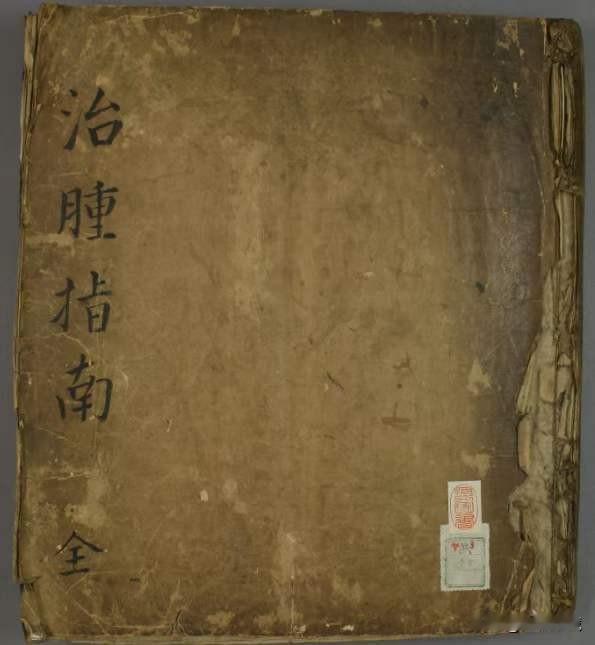 治腫指南
全